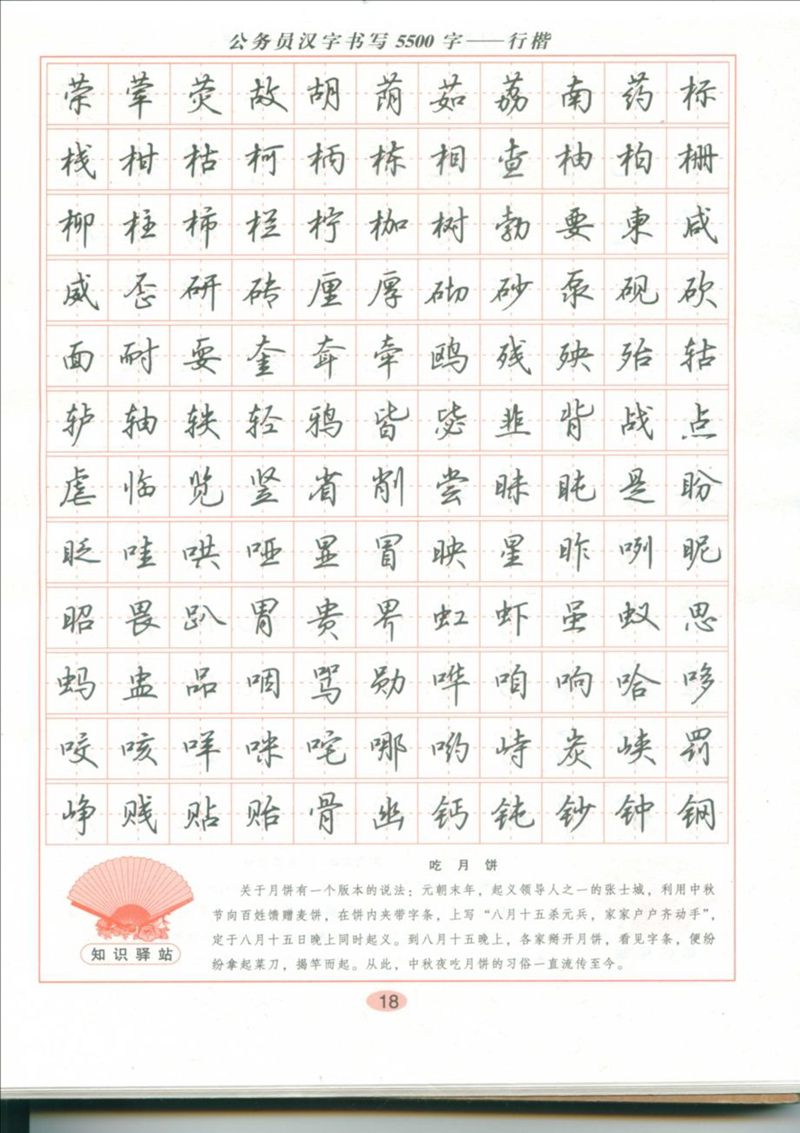 公务员汉字书写5500字——行楷
荣荤荧故胡荫茹荔南药标
栈柑枯柯柄栋相查柚柏栅
柳柱柿栏柠枷树勃要柬咸
威歪研砖厘厚砌砂泵砚砍
面耐耍奎耷牵鸥残殃殆轱
轳轴轶轻鸦皆毖韭背战点
虐临览竖省削尝昧盹是盼
眨哇哄哑显冒映星昨咧昵
昭畏趴胃贵界虹虾虽蚁思
蚂盅品咽骂勋哗咱响哈哆
咬咳咩咪咤哪哟峙炭峡罚
峥贱贴贻骨幽钙钝钞钟钢
吃月饼
关于月饼有一个版本的说法：元朝末年，起义领导人之一的张士城，利用中秋
节向百姓馈赠麦饼，在饼内夹带字条，上写“八月十五杀元兵，家家户户齐动手”，
定于八月十五日晚上同时起义。到八月十五晚上，各家掰开月饼，看见字条，便纷
纷拿起菜刀，揭竿而起。从此，中秋夜吃月饼的习俗一直流传至今。
知识驿站
18